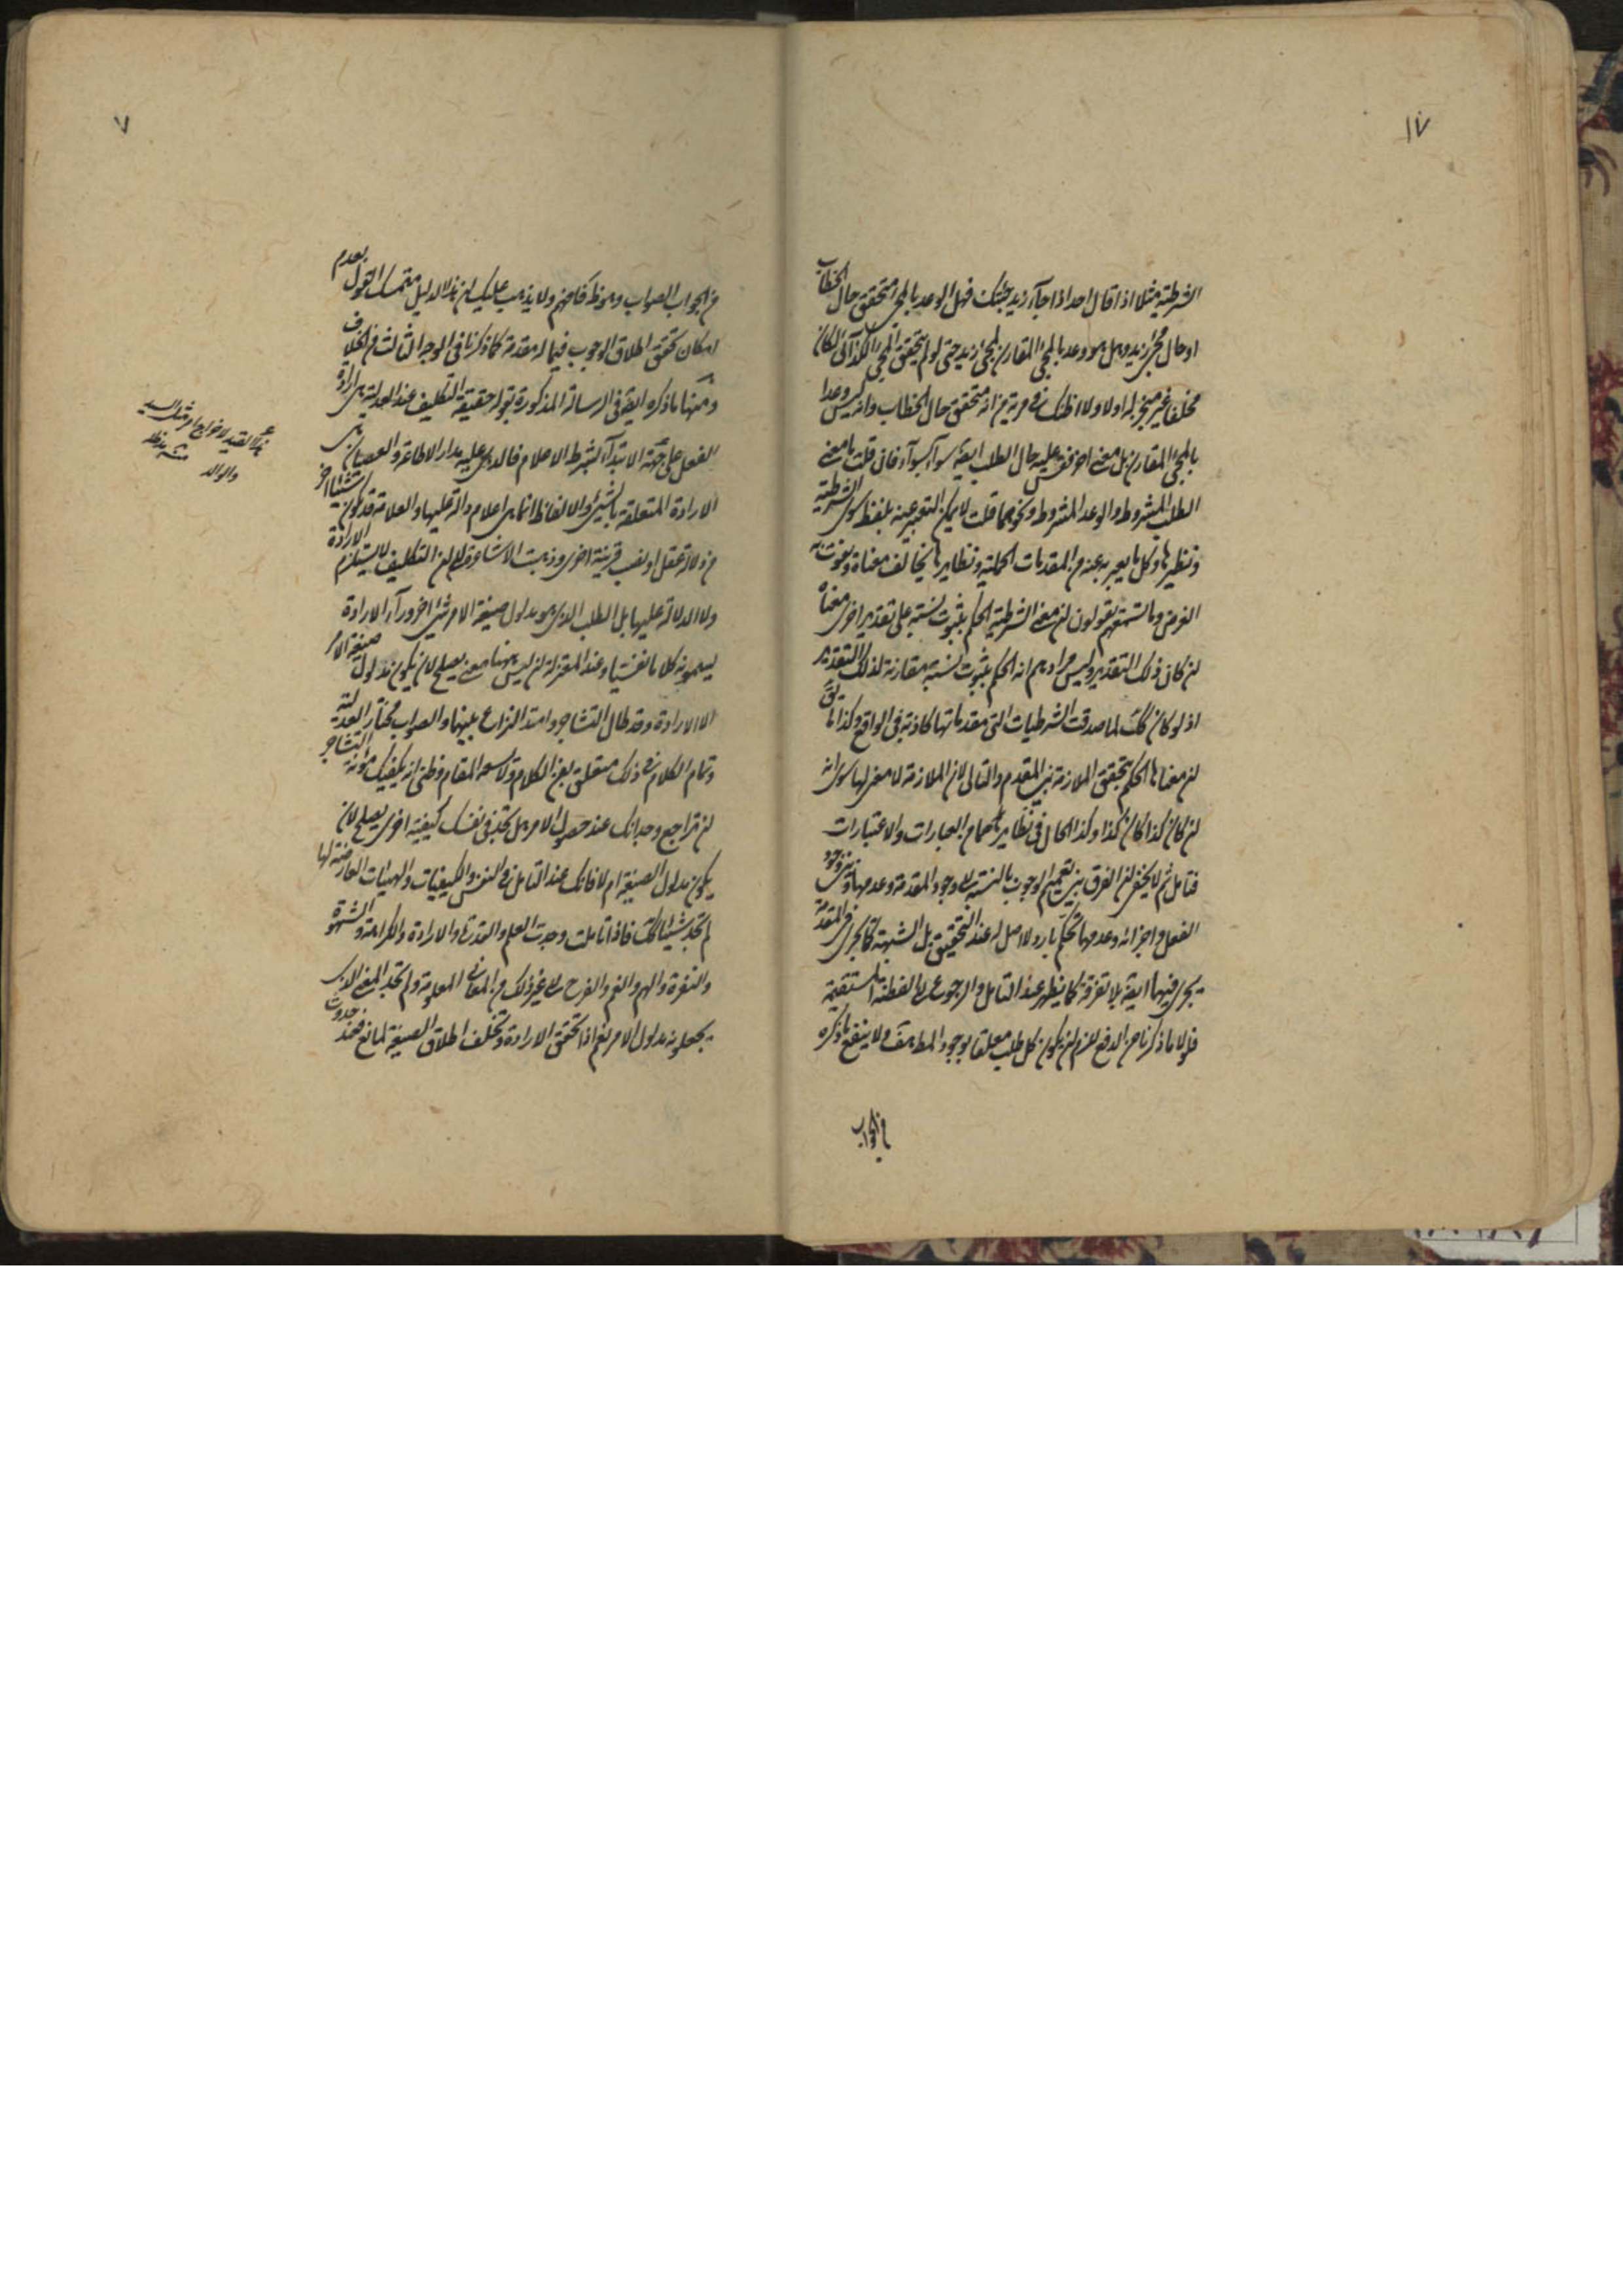 ١٧
الشرطية مثلا اذا قال احد اذا جاء زيد جئتك فهل الوعد بالمجئ متحقق حال الخطاب
او حال مجئ زيد وهل هو وعد بالمجئ المقارن لمجئ زيد حتى لو لم يتحقق المجئ
مخلفا غير منجز له اولا ولا اظنك في مرية من انه متحقق حال الخطاب وانه ليس وعدا
بالمجئ المقارن بل معنى اخر فقس عليه حال الطلب ايضا سواء بسواء فان قلت ما معنى
الطلب المشروط والوعد المشروط ونحوهما قلت لا يمكن التعبير عنه بلفظ سوى الشرطية
ونظيرها وكل ما يعبر به عنه من المقدمات الحملية ونظايرها يخالف معناه ويفوت به
الغرض وما تسمعهم يقولون ان معنى الشرطية الحكم بثبوت نسبة على تقدير اخرى معناه
ان كان ذلك التقدير وليس مرادهم انه الحكم بثبوت نسبة مقارنة لذلك التقدير
اذ لو كان كك لما صدقت الشرطيات التي مقدماتها كاذبة في الواقع وكذا ما يق
ان معناها الحكم بتحقق الملازمة بين المقدم والتالي لان الملازمة لا معنى لها سوى انه
ان كان كذا كان كذا وكذا الحال في نظايرهما من العبارات والاعتبارات
فتامل ثم لا يخفى ان الفرق بين تعميم الوجوب بالنسبة الى وجود المقدمة وعدمها وبين وجود
الفعل واجزائه وعدمها تحكم بارد ولا اصل له عند التحقيق بل الشبهة كما تجري في المقدمة
تجري فيها ايضا بلا تفرقة كما يظهر عند التامل والرجوع الى الفطنة المستقيمة
فلولا ما ذكرنا من الدفع للزم ان يكون كل طلب معلقا بوجود المط ولا ينفع ما ذكره
في الجواب
٧
من الجواب الصواب وهو ظ فافهم ولا يذهب عليك ان هذا الدليل متمسك القول بعدم
امكان تحقق اطلاق الوجوب فيما له مقدمة كما ذكرنا في الوجه الثالث من الخلاف
ومنها ما ذكره ايضا في الرسالة المذكورة بقوله حقيقة التكليف عند العدلية هي ارادة
الفعل على جهة الابتداء بشرط الاعلام فالذي عليه مدار الاطاعة والعصيان هي
الارادة المتعلقة بالشئ والالفاظ انما هي اعلام دالة عليها والعلامة قد يكون شيئا اخر
من دلالة عقل او نصب قرينة اخرى وذهبت الاشاعرة الى ان التكليف لا يستلزم الارادة
ولا الدلالة عليها بل الطلب الذي هو مدلول صيغة الامر شئ اخر وراء الارادة
يسمونه كلاما نفسيا وعند المعتزلة ان ليس ههنا معنى يصلح لان يكون مدلول صيغة الامر
الا الارادة وقد طال التشاجر وامتد النزاع بينهما والصواب مختار العدلية
وتمام الكلام في ذلك متعلق بفن الكلام ولا يسعه المقام وظني انه يكفيك مؤنة التشاجر
ان تراجع وجدانك عند حصول الامر هل تجد في نفسك كيفية اخرى يصلح لان
يكون مدلول الصيغة ام لا فانك عند التامل في النفس والكيفيات والهيئات العارضة لها
لم تجد شيئا كك فاذا تاملت وجدت العلم والقدرة والارادة والكراهة والشهوة
والنفرة والهم والغم والفرح الى غير ذلك من المعاني المعلومة ولم تجد المعنى الذي
يجعلونه مدلول الامر نعم اذا تحقق الارادة وتخلف اطلاق الصيغة لمانع فعند حدوث
هذا القيد لاخراج امر مثل السيد
والوالد منه مد ظله